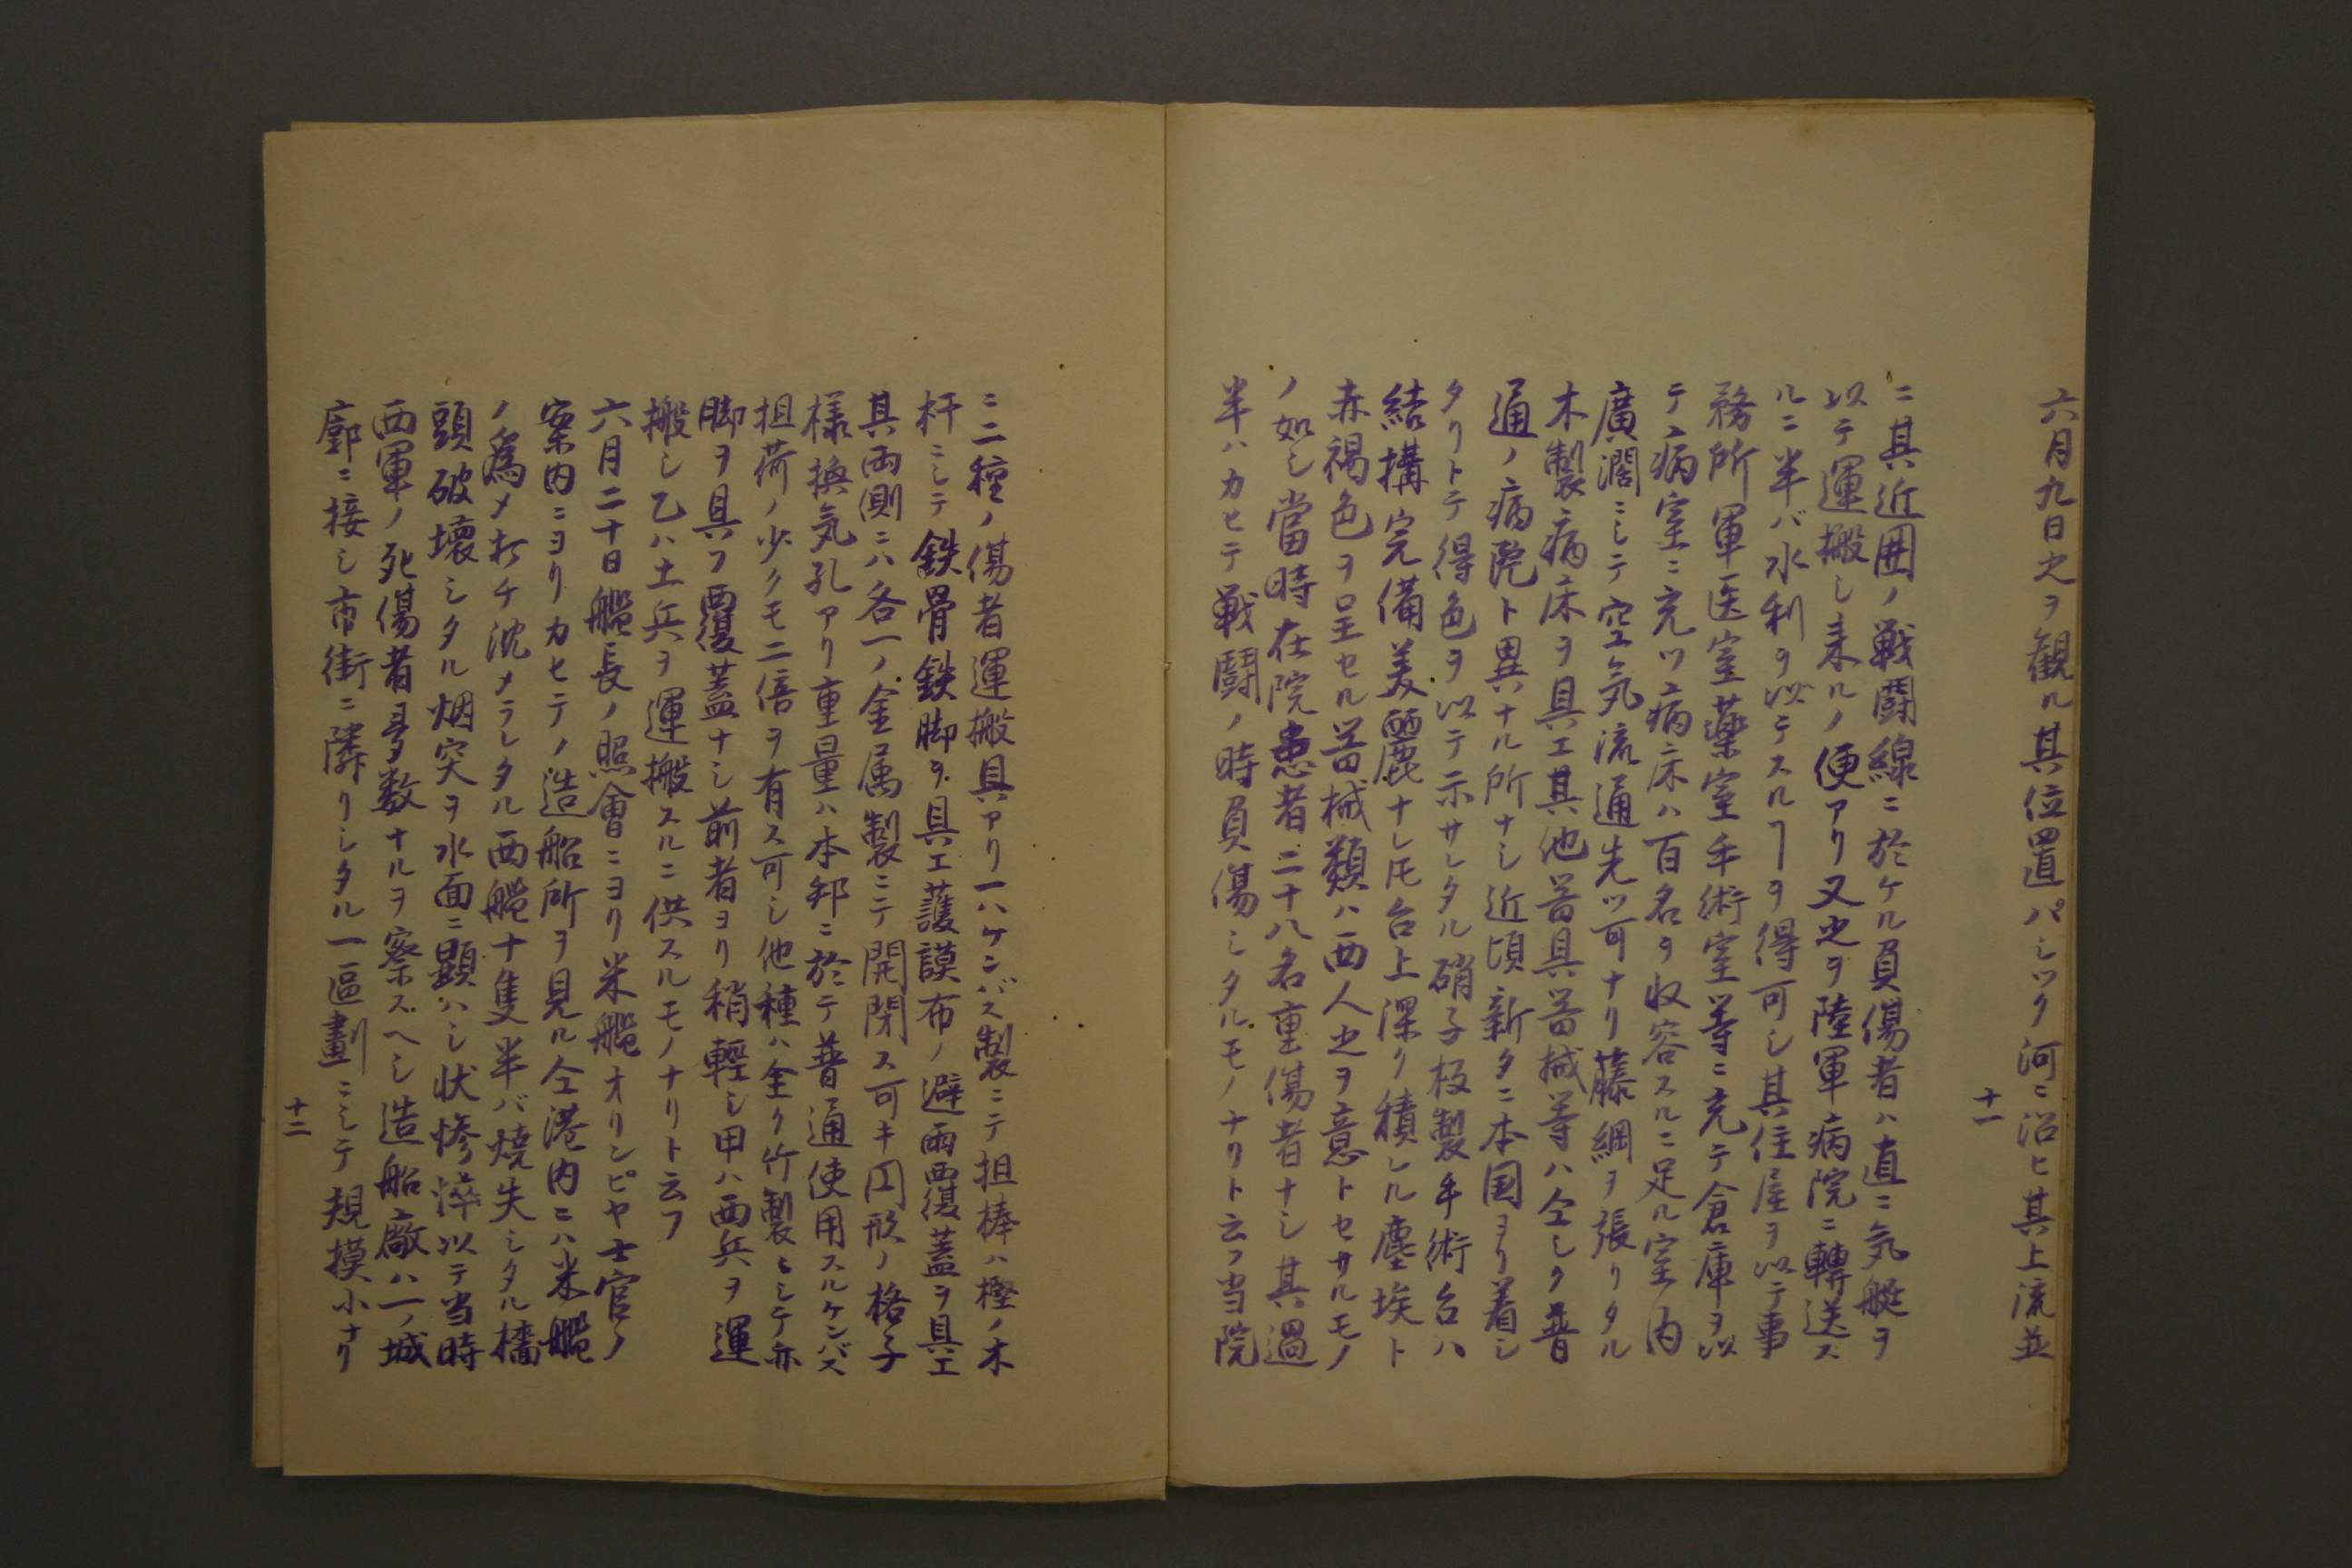 六月九日之ヲ観ル其位置パシック河ニ沿ヒ其上流並
十一
ニ其近囲ノ戦闘線ニ於ケル負傷者ハ直ニ気艇ヲ
以テ運搬シ来ルノ便アリ又之ヲ陸軍病院ニ轉送ス
ルニ半バ水利ヲ以テスルヿヲ得可シ其住屋ヲ以テ事
務所軍医室薬室手術室等ニ充テ倉庫ヲ以
テ病室ニ充ツ病床ハ百名ヲ收容スルニ足ル室内
廣濶ニシテ空気流通先ツ可ナリ藤綱ヲ張リタル
木製病床ヲ具エ其他器具器械等ハ仝シク普
通ノ病院ト異ナル所ナシ近頃新タニ本国ヨリ着シ
タリトテ得色ヲ以テ示サレタル硝子板製手術台ハ
結搆完備美麗ナレ𪜈台上深ク積レル塵埃ト
赤褐色ヲ呈セル器械類ハ西人之ヲ意トセサルモノ
ノ如シ當時在院患者二十八名重傷者ナシ其過
半ハカヒテ戦闘ノ時負傷シタルモノナリト云フ当院
ニ二種ノ傷者運搬具アリ一ハケンバス製ニテ担棒ハ樫ノ木
杆ニシテ鉄骨鉄脚ヲ具エ護謨布ノ避雨覆蓋ヲ具エ
其両側ニハ各一ノ金属製ニテ開閉ス可キ円形ノ格子
様換気孔アリ重量ハ本邦ニ於テ普通使用スルケンバス
担荷ノ少クモ二倍ヲ有ス可シ他種ハ全ク竹製ニシテ亦
脚ヲ具フ覆蓋ナシ前者ヨリ稍輕シ甲ハ西兵ヲ運
搬シ乙ハ土兵ヲ運搬スルニ供スルモノナリト云フ
六月二十日艦長ノ照會ニヨリ米艦オリンピヤ士官ノ
案内ニヨリカヒテノ造船所ヲ見ル仝港内ニハ米艦
ノ為メ打チ沈メラレタル西艦十隻半バ焼失シタル檣
頭破壊シタル烟突ヲ水面ニ顕ハシ状惨淬以テ当時
西軍ノ死傷者多数ナルヲ察スヘシ造船廠ハ一ノ城
廓ニ接シ市街ニ隣リシタル一區劃ニシテ規摸小ナリ
十二